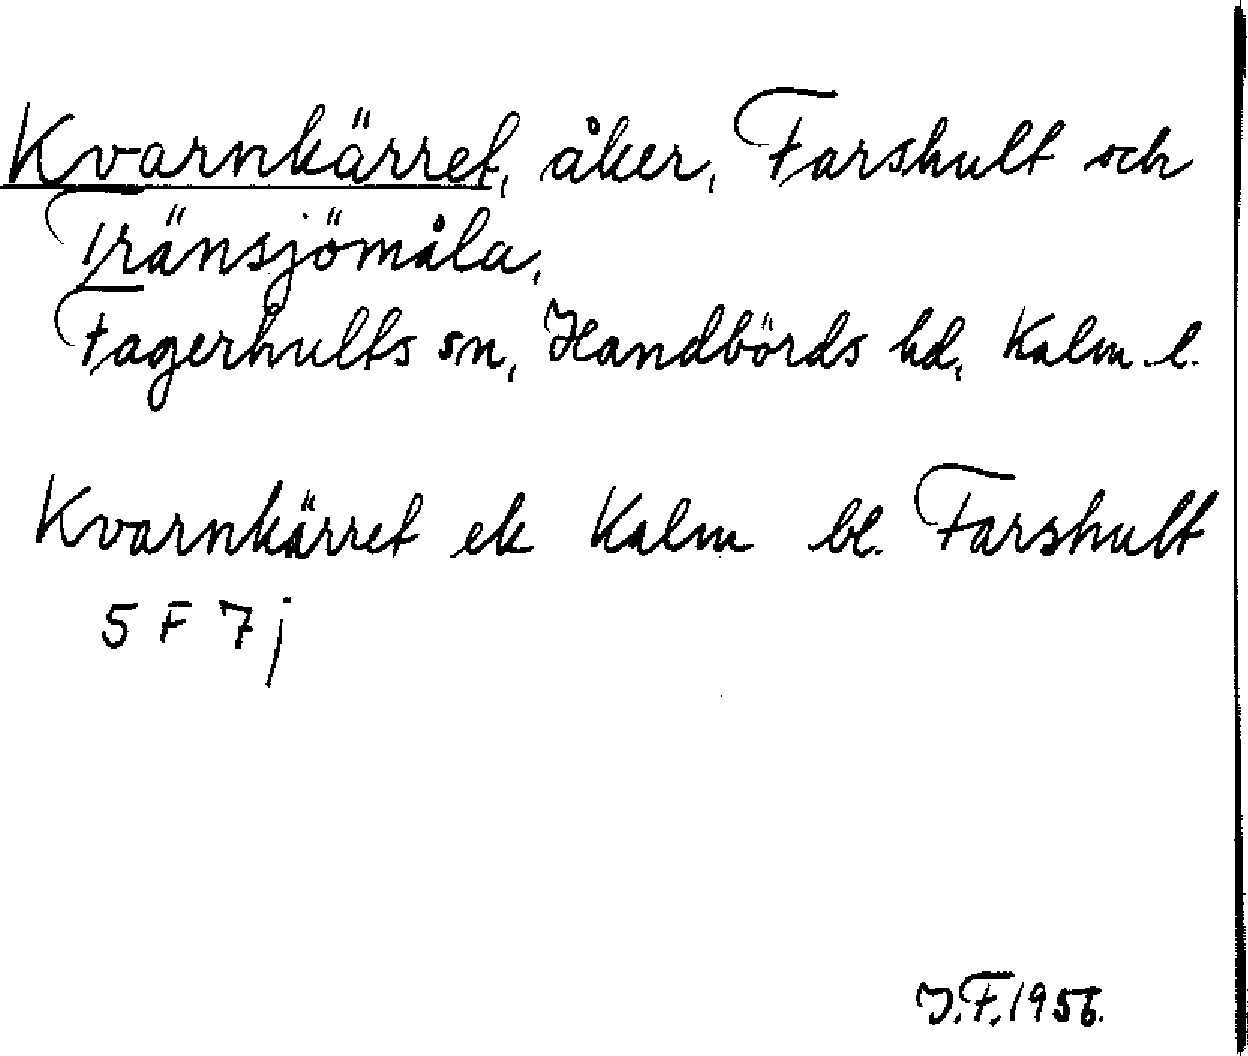 Kvarnkärret, åker, Farshult och
Tränsjömåla,
Fagerhults sn, Handbörds hd, Kalm. l.
Kvarnkärret ek Kalm bl. Farshult
5 F 7j
J.F. 1956.